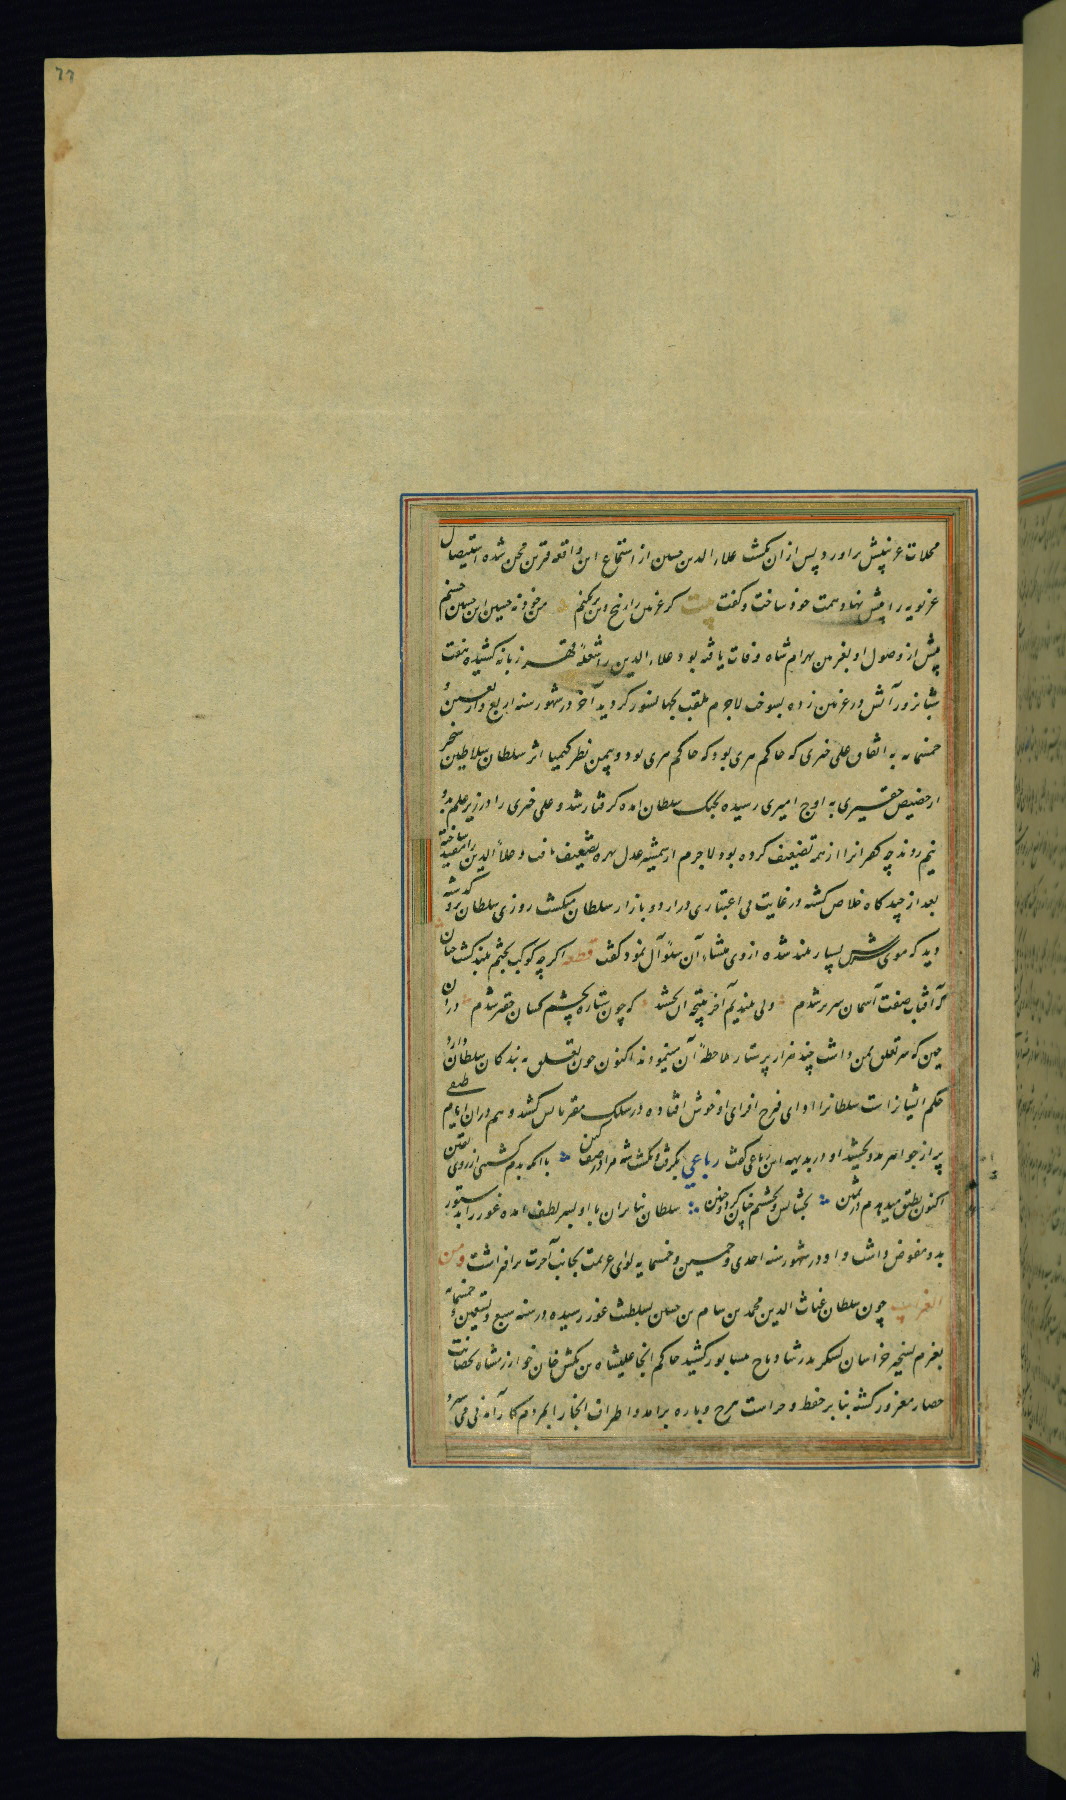 ۲۲
محلات غزنینش براورد پس از ان بکشت علاء الدین حسین از استماع این واقعه قرین محن شده استیصال
غزنویه را پیش نهاد همت خود ساخت و گفت بیت گر غزنین را ز بیخ و بن بر نکنم من خود نه حسین ابن حسین حسنم
پیش از وصول او بغزنین بهرام شاه وفات یافته بود علاء الدین را شعلۀ قهر زبانه کشیده هفت
شبانروز آتش در غزنین زده بسوخت لاجرم ملقب بجهانسوز گردید آخر در شهور سنه اربع و اربعین و
خمسمایه به اتفاق علی جتری که حاکم هری بود که حاکم هری بود و بیمن نظر کیمیا اثر سلطان سلاطین سنجر
از حضیض حقیری به اوج امیری رسیده بجنک سلطان امده گرفتار شد و علی جتری را در زیر علم بدو
نیم زدند چه کهرانرا از همه تضعیف کرده بود لاجرم از تیشه عدل بهره تضعیف یافت و علاء الدین را مقید ساخته
بعد از چند گاه خلاص گشته در غایت بی اعتباری در اردو بازار سلطان میگشت روزی سلطان برو گذشته
دید که موی سرش بسیار بلند شده از وی منشاء آن سئوال نمود گفت قطعه اگرچه کوکب بختم بلند گشت چنان
که آفتاب صفت آسمان سریر شدم ولی بلندیم آخر نتیجه ان بخشد که چون ستاره بچشم کسان حقیر شدم دران
حین که سر تعلق بمن داشت چند هزار پرستار ملاحظۀ آن مینمودند اکنون چون تعلق به بندکان سلطان دارد
حکم ایشانراست سلطانرا ادای فرح افزای او خوش افتاده در سلک مقربانش کشید و هم دران ایام طبقی
پر از جواهر بدو بخشید او در بدیهه این رباعی گفت رباعی بگرفت و نکشت شه مرا در صف کین با انکه بدم کشتنی از روی یقین
اکنون بطبق میدهدم در ثمین بخشایش و بخشش چنان کرد و چنین سلطان بنابران با او بسر لطف امده غور را بدستور
بدو مفوض داشت و او در شهور سنه احدی و خمسین و خمسمایه لوای عزیمت بجانب آخرت برافراشت و من
الغرایب چون سلطان غیاث الدین محمد بن سام بن حسین بسلطنت غور رسیده در سنه سبع و تسعین و خمسمایه
بعزم تسخیر خراسان لشکر بدر شادیاخ نیسابور کشید حاکم انجا علیشاه بن تکش خان خوارزمشاه بحصانت
حصار مغرور گشته بنابر حفظ و حراست برج و باره برامد و اطراف انجا را بمردم کار آمدنی می سپرد